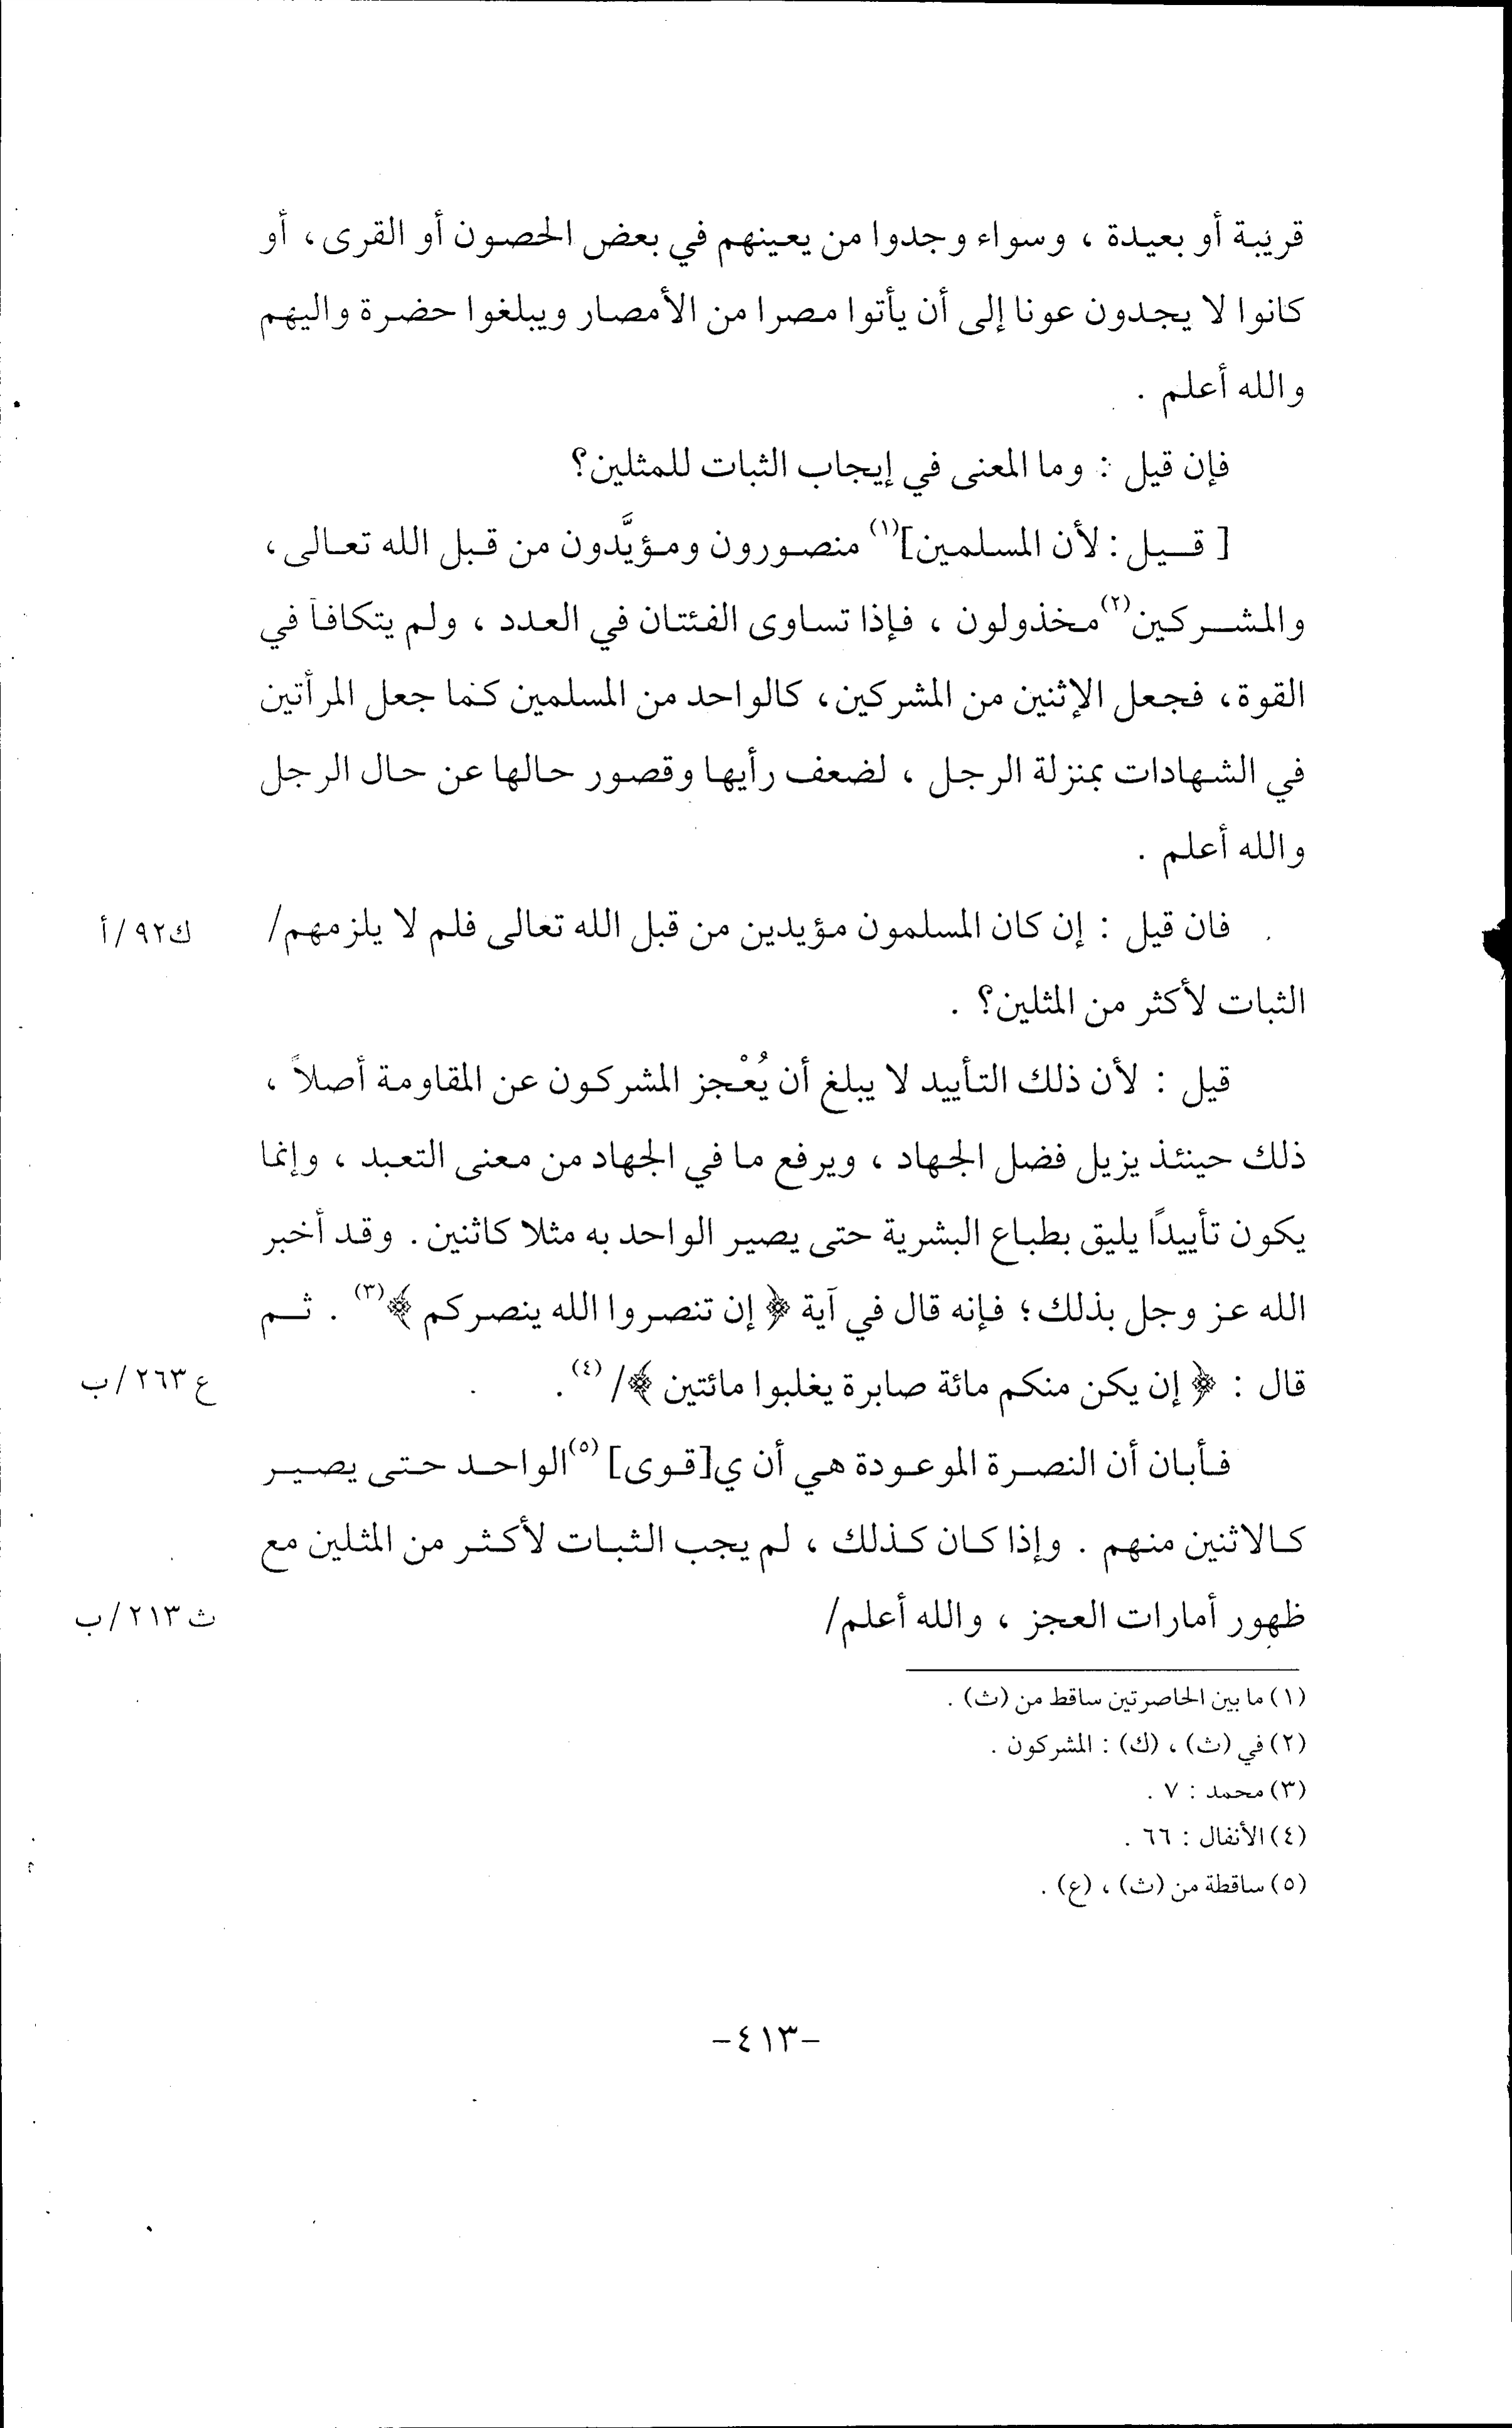 قريبة أو بعيدة ، وسواء وجدوا من يعينهم في بعض الحصون أو القرى، أو
كانوا لا يجدون عونا إلى أن يأتوا مصرا من الأمصار ويبلغوا حضرة واليهم
والله أعلم .
فإن قيل : وما المعنى في إيجاب الثبات للمثلين؟
[ قيل : لأن المسلمين](١) منصورون ومؤيَّدون من قبل الله تعالى ،
والمشركين(٢) مخذولون ، فإذا تساوى الفئتان في العدد ، ولم يتكافآ في
القوة ، فجعل الإثنين من المشركين ، كالواحد من المسلمين كما جعل المرأتين
في الشهادات بمنزلة الرجل ، لضعف رأيها وقصور حالها عن حال الرجل
والله أعلم .
فان قيل : إن كان المسلمون مؤيدين من قبل الله تعالى فلم لا يلزمهم/ ك٩٢/أ
الثبات لأكثر من المثلين؟ .
قيل : لأن ذلك التأييد لا يبلغ أن يُعْجز المشركون عن المقاومة أصلاً ،
ذلك حينئذ يزيل فضل الجهاد ، ويرفع ما في الجهاد من معنى التعبد ، وإنما
يكون تأييدًا يليق بطباع البشرية حتى يصير الواحد به مثلا كاثنين . وقد أخبر
الله عز وجل بذلك؛ فإنه قال في آية ﴿ إن تنصروا الله ينصركم ﴾(٣) . ثم
قال : ﴿ إن يكن منكم مائة صابرة يغلبوا مائتين ﴾/(٤) . ع٢٦٣/ب
فأبان أن النصرة الموعودة هي أن ي[قوى](٥) الواحد حتى يصير
كالاثنين منهم . وإذا كان كذلك ، لم يجب الثبات لأكثر من المثلين مع
ظهور أمارات العجز ، والله أعلم/ ث٢١٣/ب
(١) ما بين الحاصرتين ساقط من (ث) .
(٢) في (ث) ، (ك) : المشركون .
(٣) محمد : ٧ .
(٤) الأنفال : ٦٦ .
(٥) ساقطة من (ث) ، (ع) .
-٤١٣-